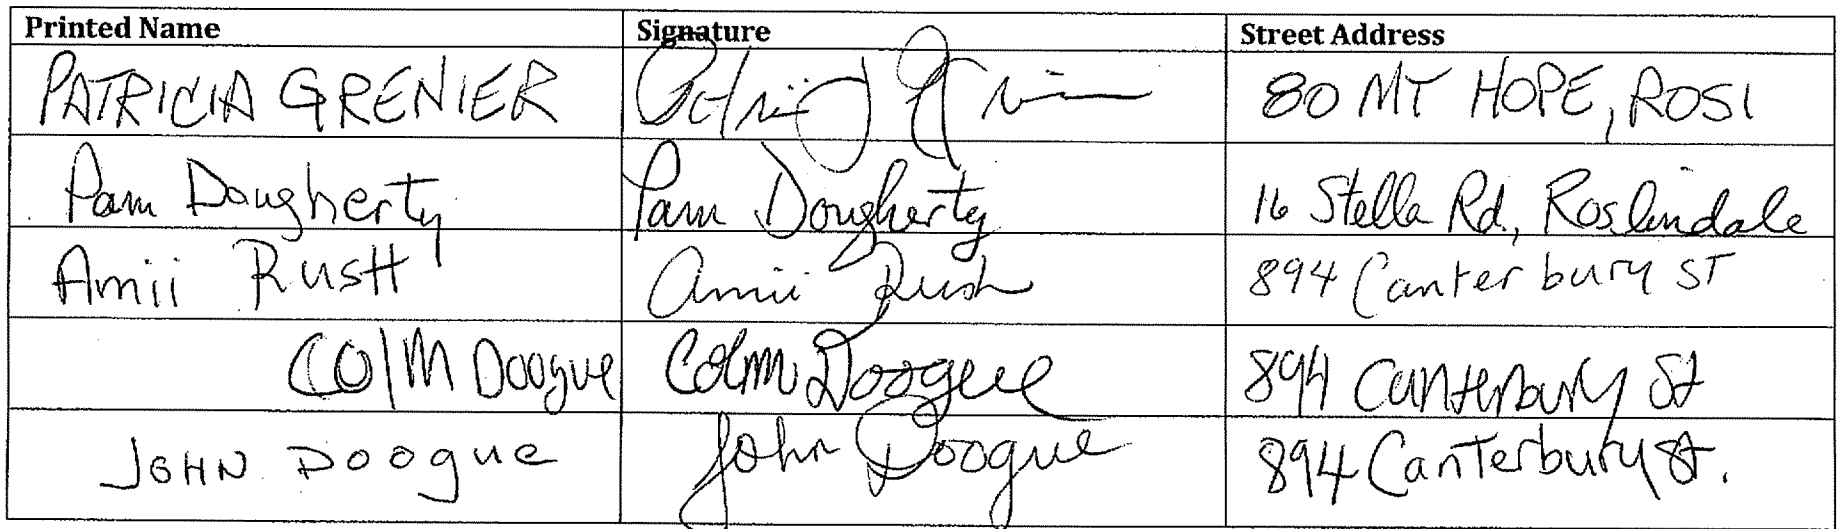 Printed Name Signature Street Address
PATRICIA GRENIER 80 MT HOPE, ROSI
Pam Dougherty Pam Dougherty 16 Stella Rd, Roslindale
Amii RusH Amii Rush 894 Canterbury ST
COlM Doogue Colm Doogue 894 Canterbury St
JOHN Doogue John Doogue 894 Canterbury St.